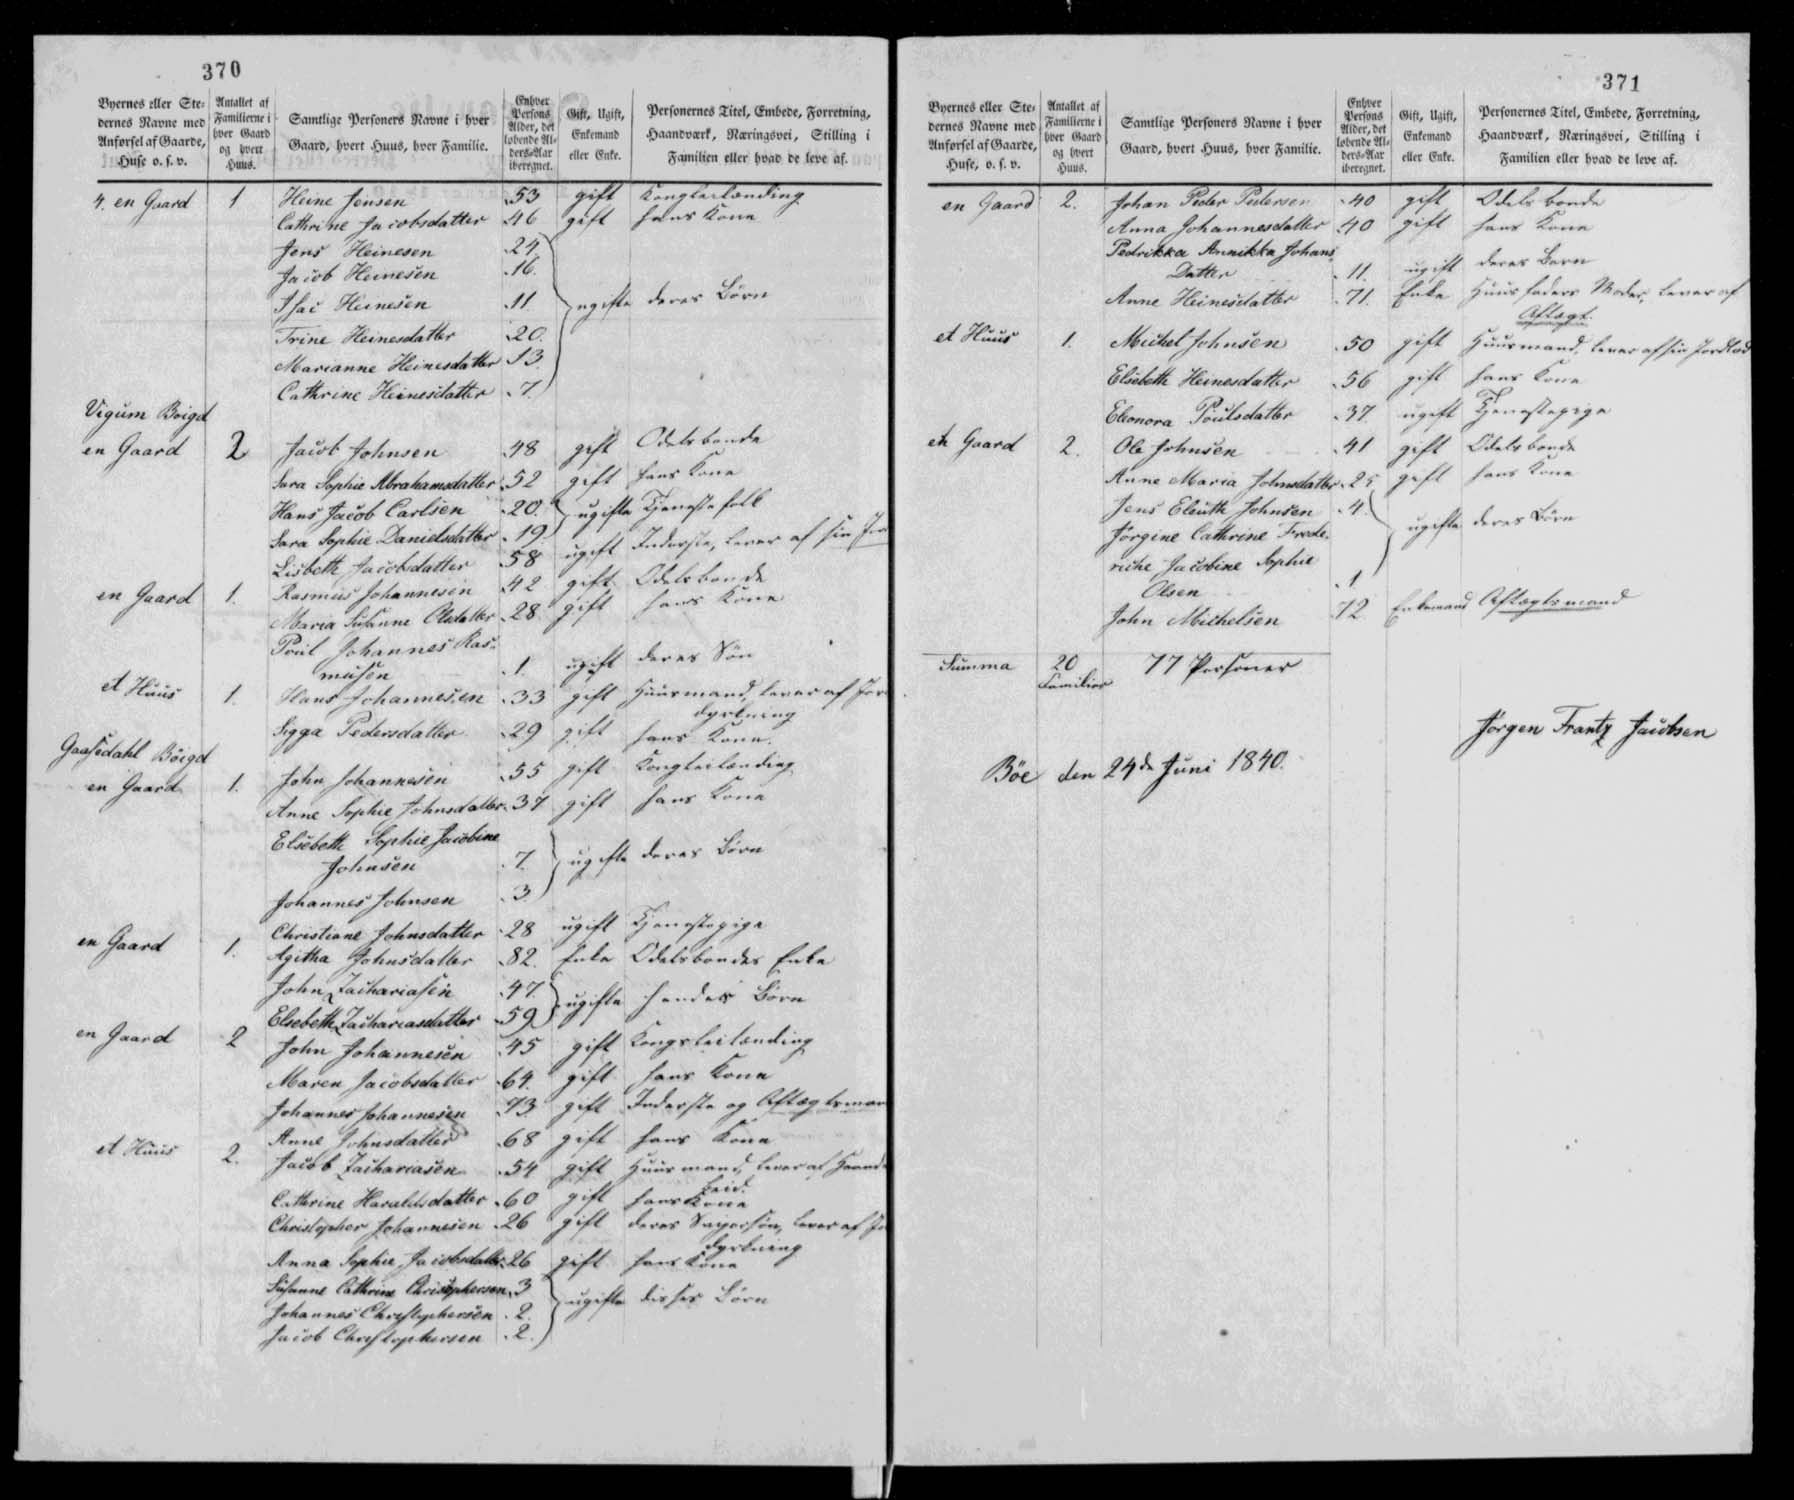 370
Byernes eller Ste-
dernes Navne med
Anførsel af Gaarde,
Huse o. s. v.
Antallet af
Familierne i
hver Gaard
og hvert
Huus.
Samtlige Personers Navne i hver
Gaard, hvert Huus, hver Familie.
Enhver
Persons
Alder, det
løbende Al-
ders-Aar
iberegnet.
Gift, Ugift,
Enkemand
eller Enke.
Personernes Titel, Embede, Forretning,
Haandværk, Næringsvei, Stilling i
Familien eller hvad de leve af.
4. en Gaard 1 Heine Jensen 53 gift Kongsleilænding
Cathrine Jacobsdatter 46 gift hans Kone
Jens Heinesen 24
Jacob Heinesen 16
Isac Heinesen 11 ugifte deres Börn
Trine Heinesdatter 20
Marianne Heinesdatter 13
Cathrine Heinesdatter 7
Vigum Boigd
en Gaard 2 Jacob Johnsen 48 gift Odelsbonde
Sara Sophie Abrahamsdatter 52 gift hans Kone
Hans Jacob Carlsen 20 ugifte Tjenestefolk
Sara Sophie Danielsdatter 19
Lisbeth Jacobsdatter 58 ugift Inderste, lever af sin Jor
en Gaard 1. Rasmus Johannesen 42 gift Odelsbonde
Maria Susanne Olsdatter 28 gift hans Kone
Poul Johannes Ras-
musen 1 ugift deres Sön
et Huus 1. Hans Johannesen 33 gift Huusmand, lever af Jor
dyrkning
Sigga Pedersdatter 29 gift hans Kone.
Gaasedahl Böigd
en Gaard 1. John Johannesen 55 gift Kongsleilænding
Anne Sophie Johnsdatter 37 gift hans Kone
Elsebeth Sophie Jacobine
Johnsen 7. ugifte deres Börn
Johannes Johnsen 3
Christiane Johnsdatter 28 ugift Tjenestepige
en Gaard 1. Agitha Johnsdatter 82. Enke Odelsbondes Enke
John Zachariasen 47. ugifte hendes Börn
Elsebeth Zachariasdatter 59
en Gaard 2 John Johannesen 45 gift Kongsleilænding
Maren Jacobsdatter 64. gift hans Kone
Johannes Johannesen 73 gift Inderste og Aftægtsman
Anne Johnsdatter 68 gift hans Kone
et Huus 2. Jacob Zachariasen 54 gift Huusmand, lever af Haand
beid.
Cathrine Haraldsdatter 60 gift hans Kone
Christopher Johannesen 26 gift deres Svigersön, lever af Jo
dyrkning
Anna Sophie Jacobsdatter 26 gift hans Kone
Susanne Cathrine Christophersen 3
Johannes Christophersen 2. ugifte disses Börn
Jacob Christophersen 2.
371
Byernes eller Ste-
dernes Navne med
Anførsel af Gaarde,
Huse, o. s. v.
Antallet af
Familierne i
hver Gaard
og hvert
Huus.
Samtlige Personers Navne i hver
Gaard, hvert Huus, hver Familie.
Enhver
Persons
Alder, det
løbende Al-
ders-Aar
iberegnet.
Gift, Ugift,
Enkemand
eller Enke.
Personernes Titel, Embede, Forretning,
Haandværk, Næringsvei, Stilling i
Familien eller hvad de leve af.
en Gaard 2. Johan Peder Pedersen 40 gift Odelsbonde
Anna Johannesdatter 40 gift hans Kone
Pedrikka Annikka Johans
Datter 11. ugift deres Barn
Anne Heinesdatter 71. Enke Huusfaders Moder, lever af
Aftægt.
et Huus 1. Michel Johnsen 50 gift Huusmand, lever af sin Jordlod
Elsebeth Heinesdatter 56 gift hans Kone
Eleonora Poulsdatter 37 ugift Tjenestepige
en Gaard 2. Ole Johnsen 41 gift Odelsbonde
Anne Maria Johnsdatter 25 gift hans Kone
Jens Eleuth Johnsen 4.
Jörgine Cathrine Frede- ugifte deres Börn
riche Jacobine Sophie
Olsen 1
John Michelsen 72 Enkemand Aftægtsmand
Summa 20 77 Personer
Familier
Jörgen Frantz Jacobsen
Böe den 24de Juni 1840.